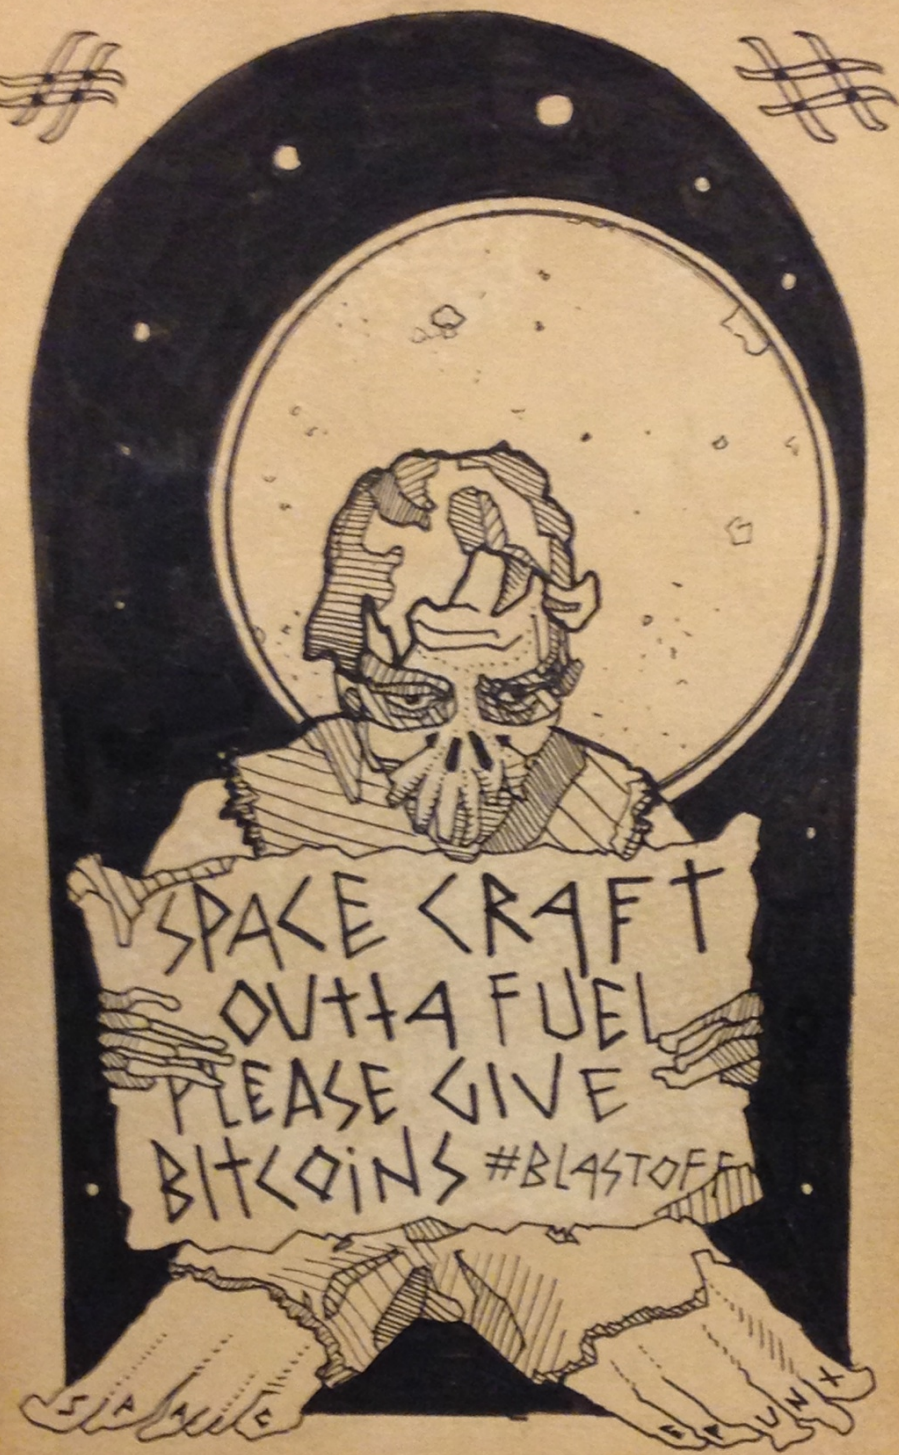 # #
SPACE CRAFT
OUTTA FUEL
PLEASE GIVE
BITCOiNS #BLASTOFF
SPAC EPUNX